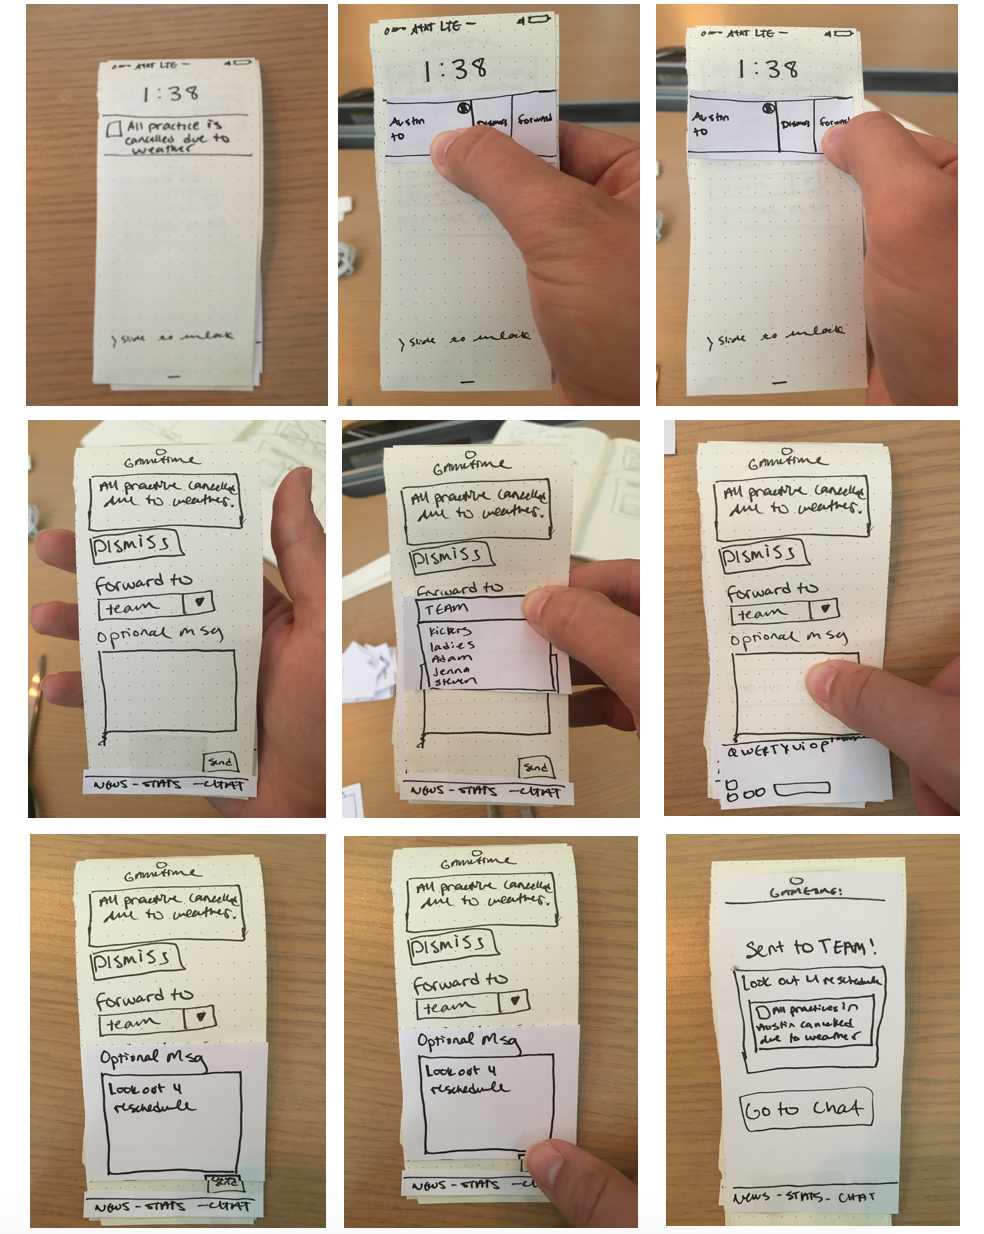 AT&T LTE
1:38
All practice is
cancelled due to
weather
> slide to unlock
AT&T LTE
1:38
Austin
to
Dismiss
Forward
> slide to unlock
AT&T LTE
1:38
Austin
to
Dismiss
Forw
> slide to unlock
GameTime
All practice cancelled
due to weather.
DISMISS
Forward to
team
Optional msg
Send
NEWS - STATS - CHAT
GameTime
All practice cancelled
due to weather.
DISMISS
Forward to
TEAM
Kickers
ladies
Adam
Jenna
Steven
Send
NEWS - STATS - CHAT
GameTime
All practice cancelled
due to weather.
DISMISS
Forward to
team
Optional msg
QWERTYUIOP
GameTime
All practice cancelled
due to weather.
DISMISS
Forward to
team
Optional Msg
Look out 4
reschedule
Send
NEWS - STATS - CHAT
GameTime
All practice cancelled
due to weather.
DISMISS
Forward to
team
Optional Msg
Look out 4
reschedule
NEWS - STATS - CHAT
GAMETIME!
Sent to TEAM!
Look out 4 reschedule
All practices in
Austin cancelled
due to weather
Go to Chat
NEWS - STATS - CHAT